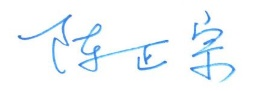 陈正宗